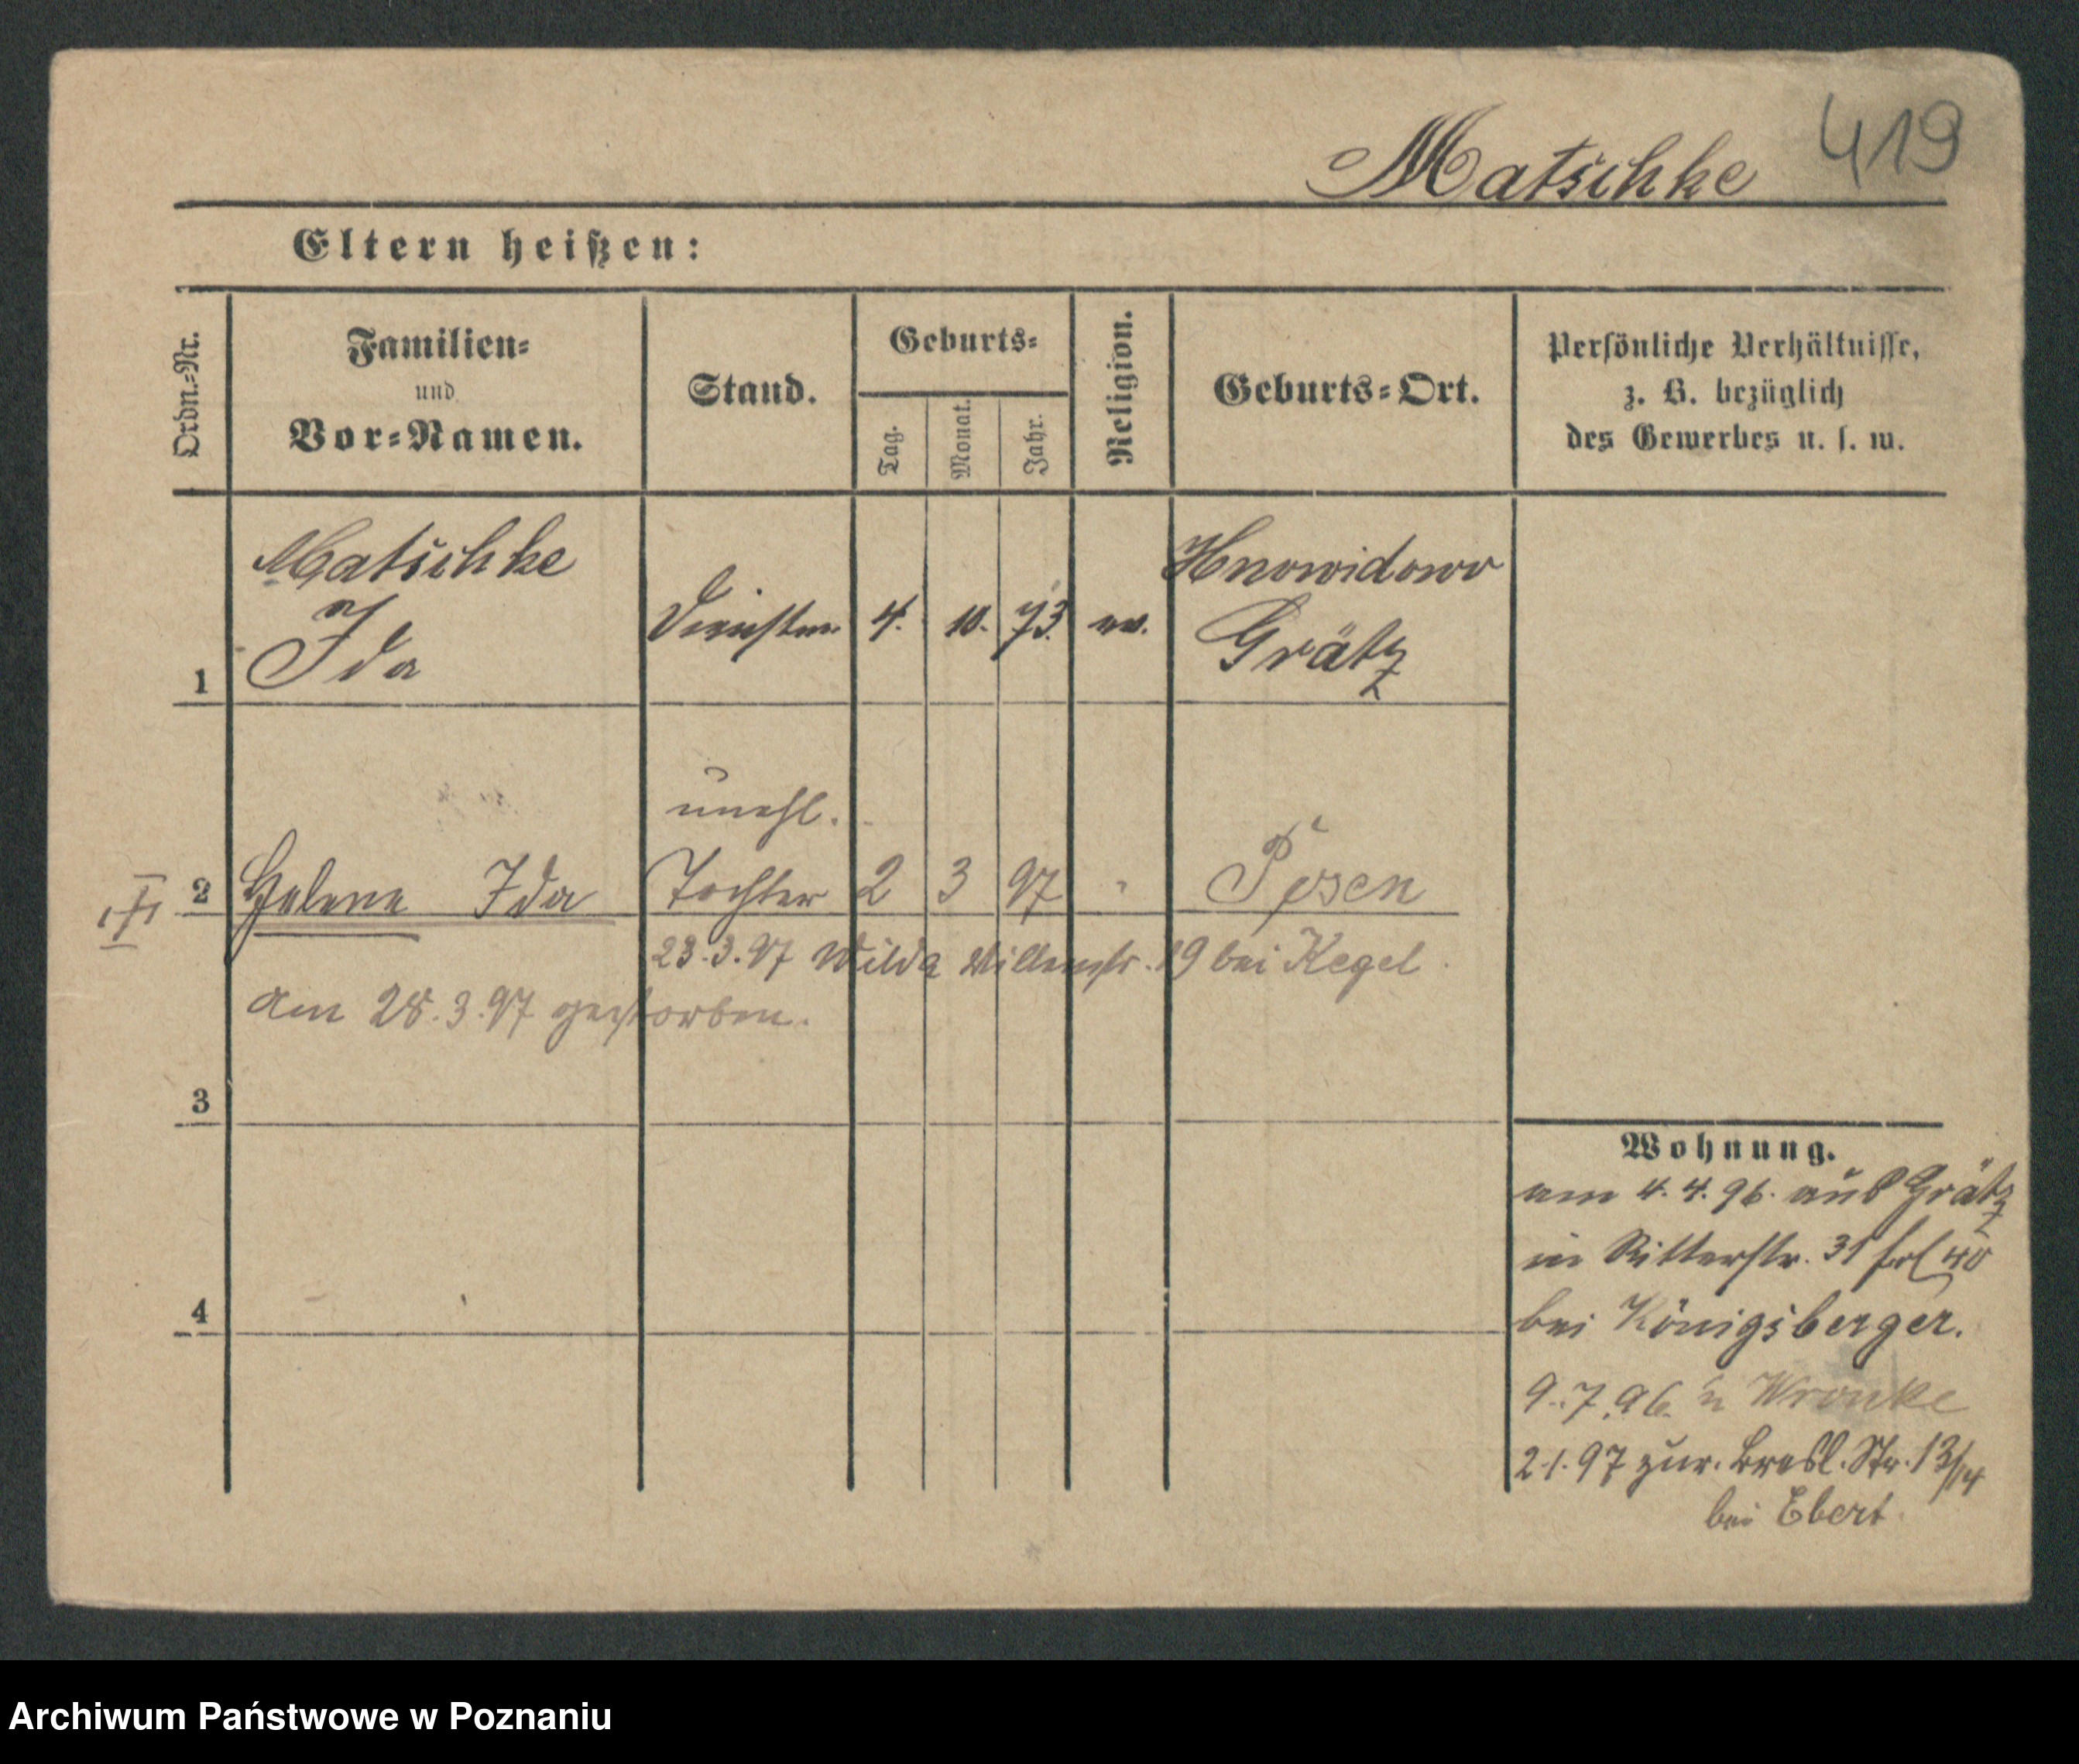 Matschke 419
Eltern heißen:
Ordn.-Nr.
Familien-
und
Vor-Namen.
Stand.
Geburts-
Tag.
Monat.
Jahr.
Religion.
Geburts-Ort.
Persönliche Verhältnisse,
z. B. bezüglich
des Gewerbes u. s. w.
Matschke
Ida
1
4. 10. 73. ev.
Grätz
unehl.
2 Helene Ida Tochter 2 3 97 " Posen
23.3.97 Wilda 19 bei Kegel
am 28.3.97 gestorben.
3
4
Wohnung.
am 4.4.96. aus Grätz
in Ritterstr. 31
bei Königsberger.
9.7.96. n Wronke
2.1.97 zur. Bresl. Str. 13/14
bei Ebert
Archiwum Państwowe w Poznaniu